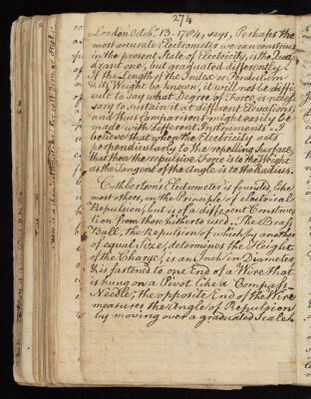 274
London Octob.r 13. 1784, says, Perhaps the
most accurate Electrometer we can construct
in the present State of Electricity, is the Quad
drant one, but graduated differently.
If the Length of the Index or Pendulum
& its Weight be known, it will not be diffi
cult to say what Degree of Force is neces
sary to sustain it at different Elevations,
and thus Comparisons might easily be
made with different Instruments. I
believe that when the Electricity acts
perpendicularly to the repelling Surface,
that then the repulsive Force is to the Weight
as the Tangent of the Angle is to the Radius.
Cuthbertson's Electrometer is founded, like
most others, on the Principle of electrical
Repulsion, but is of a different Construc
tion from those hitherto used. The Brass
Ball, the Repulsion of which by another
of equal Size, determines the Height
of the Charge, is an Inch in Diameter
& is fastened to one End of a Wire that
is hung on a Pivot like a Compass
Needle; the opposite End of the Wire
measures the Angle of Repulsion
by moving over a graduated Scale.